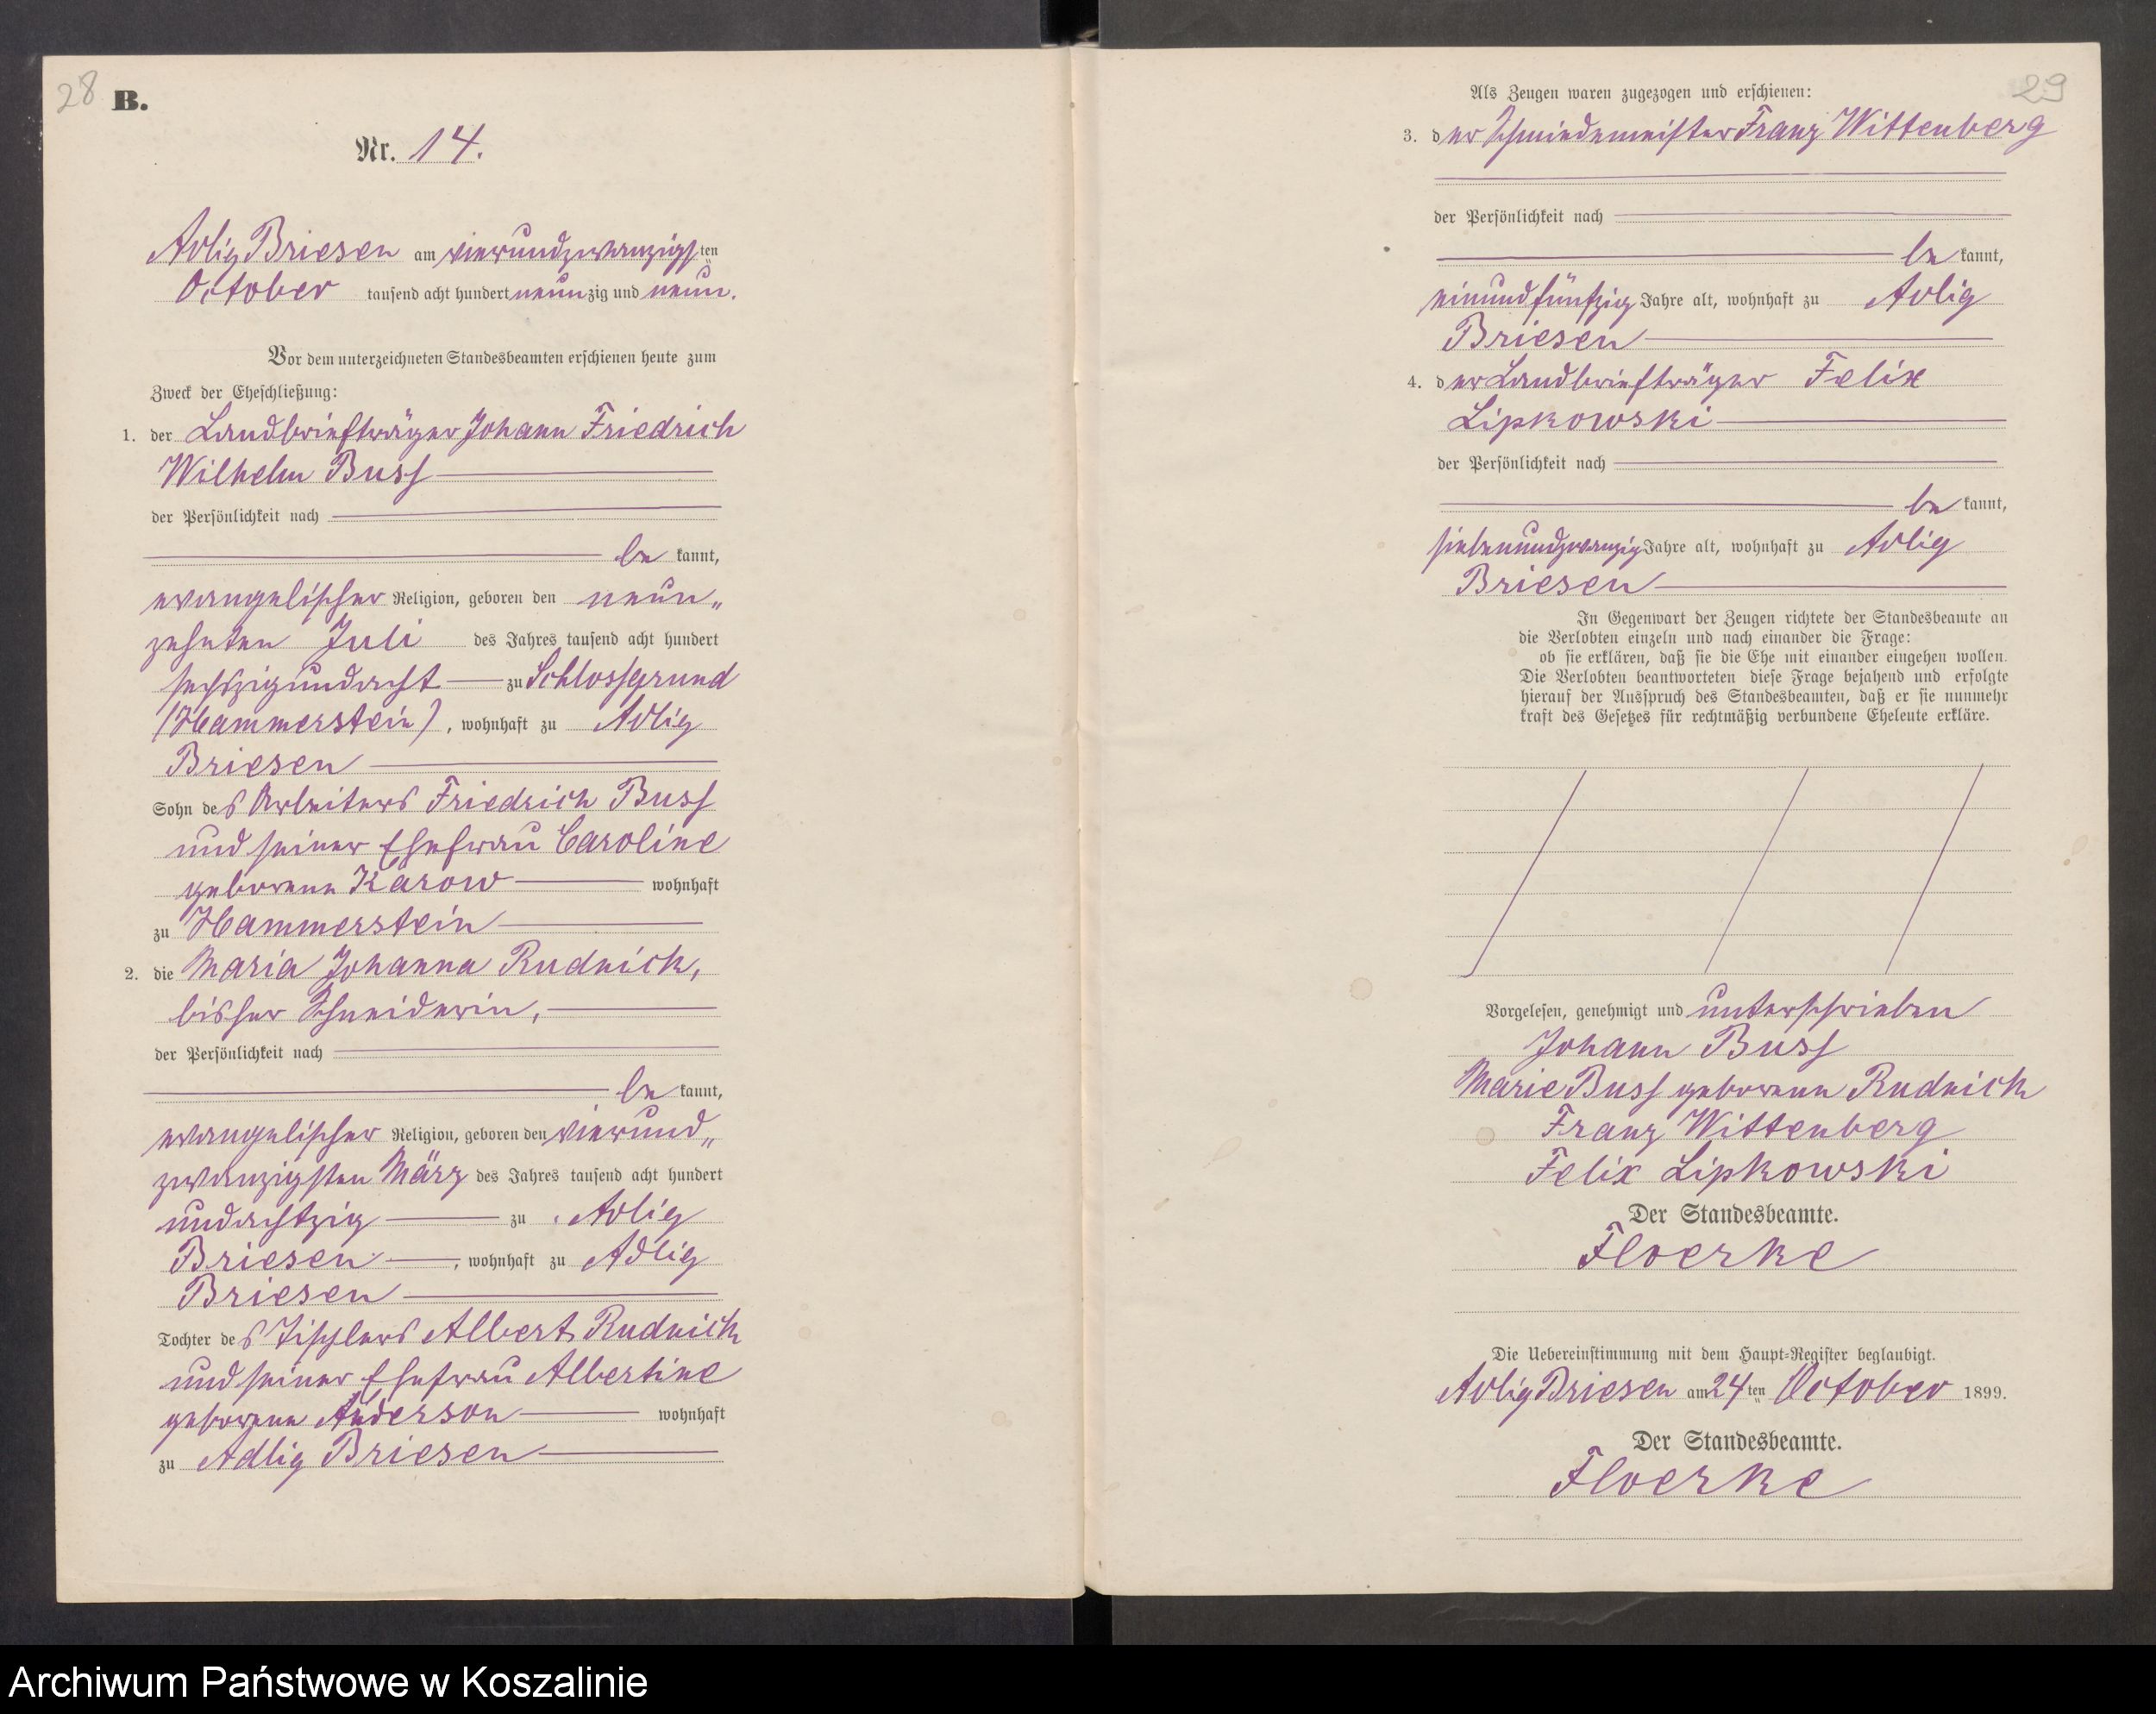 28
B.
Nr. 14.
Adlig Briesen am vierundzwanzigsten
October tausend acht hundert neunzig und neun.
Vor dem unterzeichneten Standesbeamten erschienen heute zum
Zweck der Eheschließung:
1. der Landbriefträger Johann Friedrich
Wilhelm Buss
der Persönlichkeit nach
be kannt,
evangelischer Religion, geboren den neun„
zehnten Juli des Jahres tausend acht hundert
sechszigundacht zu Schlossgrund
(Hammerstein), wohnhaft zu Adlig
Briesen
Sohn des Arbeiters Friedrich Buss
und seiner Ehefrau Caroline
geborene Karow wohnhaft
zu Hammerstein
2. die Maria Johanna Rudnick,
bisher Schneiderin,
der Persönlichkeit nach
be kannt,
evangelischer Religion, geboren den vierund„
zwanzigsten März des Jahres tausend acht hundert
undachtzig zu Adlig
Briesen, wohnhaft zu Adlig
Briesen
Tochter des Tischlers Albert Rudnick
und seiner Ehefrau Albertine
geborene Anderson wohnhaft
zu Adlig Briesen
29
Als Zeugen waren zugezogen und erschienen:
3. der Schmiedemeister Franz Wittenberg
der Persönlichkeit nach
be kannt,
einundfünfzig Jahre alt, wohnhaft zu Adlig
Briesen
4. der Landbriefträger Felix
Lipkowski
der Persönlichkeit nach
be kannt,
siebenundzwanzig Jahre alt, wohnhaft zu Adlig
Briesen
In Gegenwart der Zeugen richtete der Standesbeamte an
die Verlobten einzeln und nach einander die Frage:
ob sie erklären, daß sie die Ehe mit einander eingehen wollen.
Die Verlobten beantworteten diese Frage bejahend und erfolgte
hierauf der Ausspruch des Standesbeamten, daß er sie nunmehr
kraft des Gesetzes für rechtmäßig verbundene Eheleute erkläre.
Vorgelesen, genehmigt und unterschrieben
Johann Buss
Marie Buss geborene Rudnick
Franz Wittenberg
Felix Lipkowski
Der Standesbeamte.
Floerke
Die Uebereinstimmung mit dem Haupt-Register beglaubigt.
Adlig Briesen am 24ten October 1899.
Der Standesbeamte.
Floerke
Archiwum Państwowe w Koszalinie